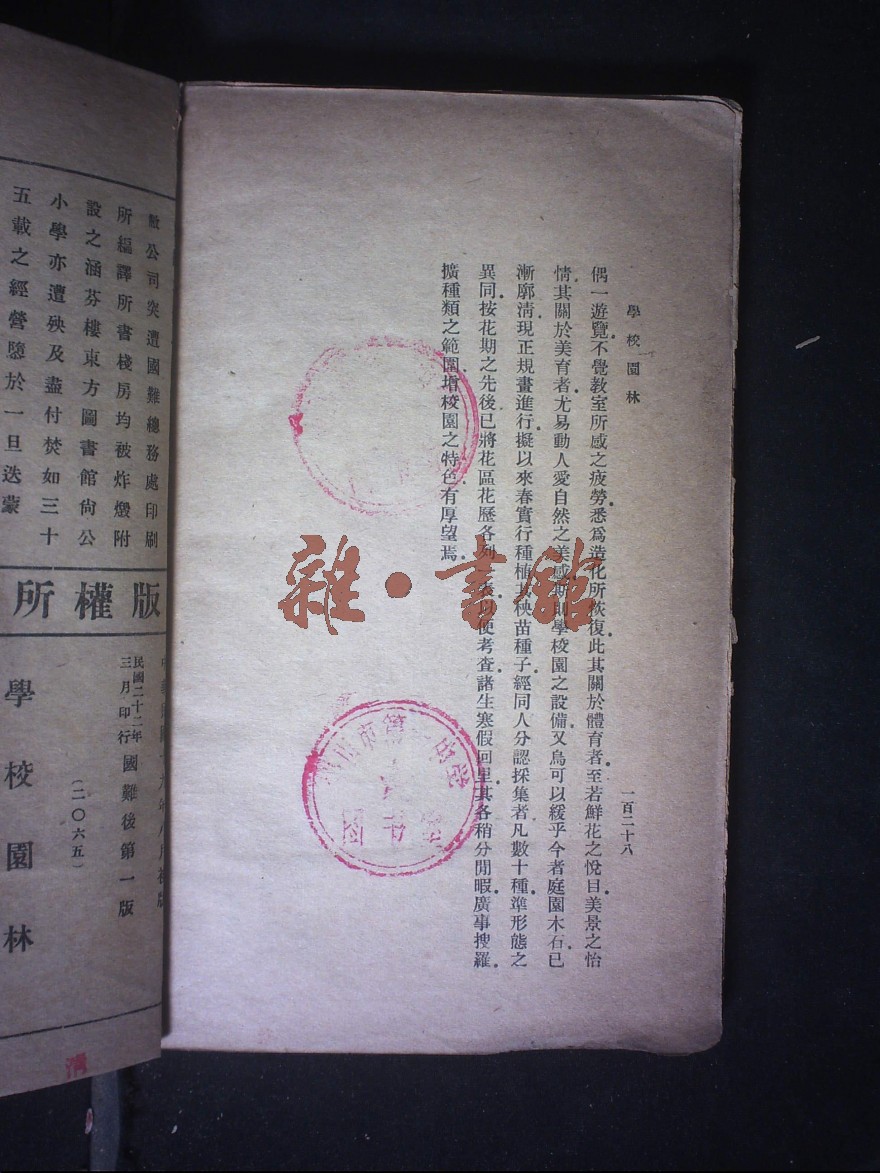 學校園林
一百二十八
偶一遊覽不覺教室所感之疲勞悉爲造化所恢復此其關於體育者至若鮮花之悅目美景之怡
情其關於美育者尤易動人愛自然之美感斯則學校園之設備又烏可以緩乎今者庭園木石已
漸廓淸現正規畫進行擬以來春實行種植其秧苗種子經同人分認採集者凡數十種準形態之
異同按花期之先後已將花區花歷各列一表以便考查諸生寒假回里其各稍分閒暇廣事搜羅
擴種類之範圍增校園之特色有厚望焉
雜·書館
敝公司突遭國難總務處印刷
所編譯所書棧房均被炸燬附
設之涵芬樓東方圖書館尙公
小學亦遭殃及盡付焚如三十
五載之經營隳於一旦迭蒙
版權所
民國二十二年三月印行
國難後第一版
(二〇六五)
學校園林